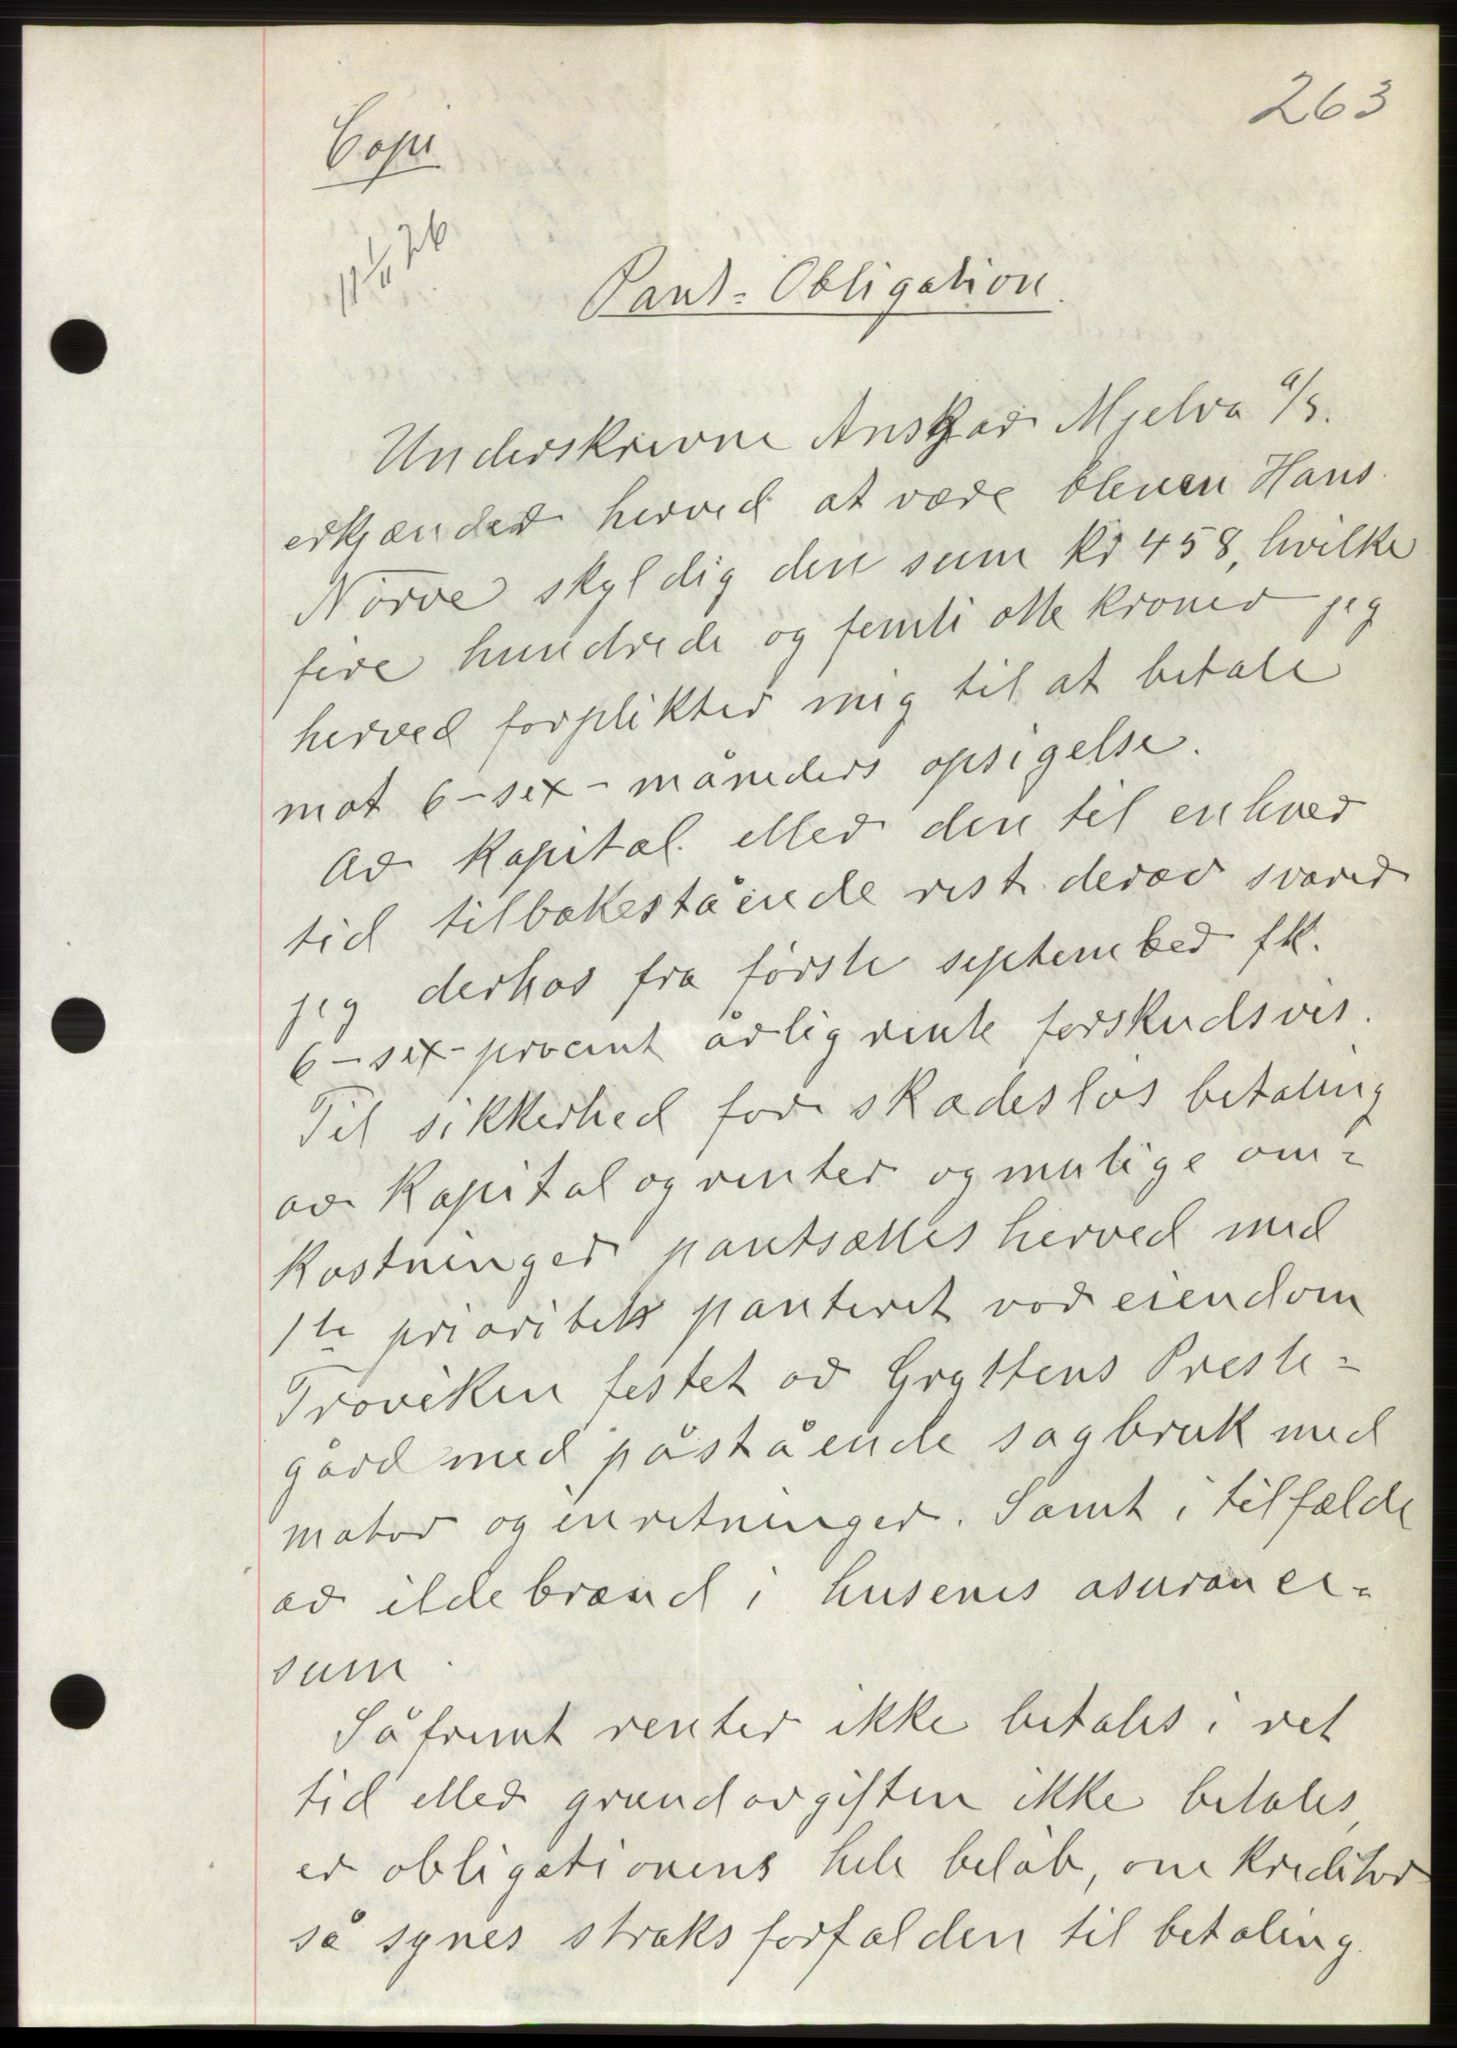 263
Copi
11/11 26
Pant-Obligation.
Underskrevne Ansgar Mjelva A/S.
erkjænder herved at være bleven Hans
Nørve skyldig den sum kr 458, hvilke
fire hundrede og femti otte kroner jeg
herved forplikter mig til at betale
mot 6-sex-måneders opsigelse.
Av kapital eller den til enhver
tid tilbakestående rest derav svarer
jeg derhos fra første september fk.
6-sex-procent årlig rente forskudsvis.
Til sikkerhed for skadesløs betaling
av kapital og renter og mulige om=
kostninger pantsættes herved med
1te prioritets panteret vor eiendom
Troviken festet av Gryttens Preste=
gård med påstående sagbruk med
motor og inretninger. Samt i tilfælde
av ildebrand i husenes asurance=
sum.
Såfremt renter ikke betales i ret
tid eller grundavgiften ikke betales,
er obligationens hele beløb, om kreditor
så synes straks forfalden til betaling.